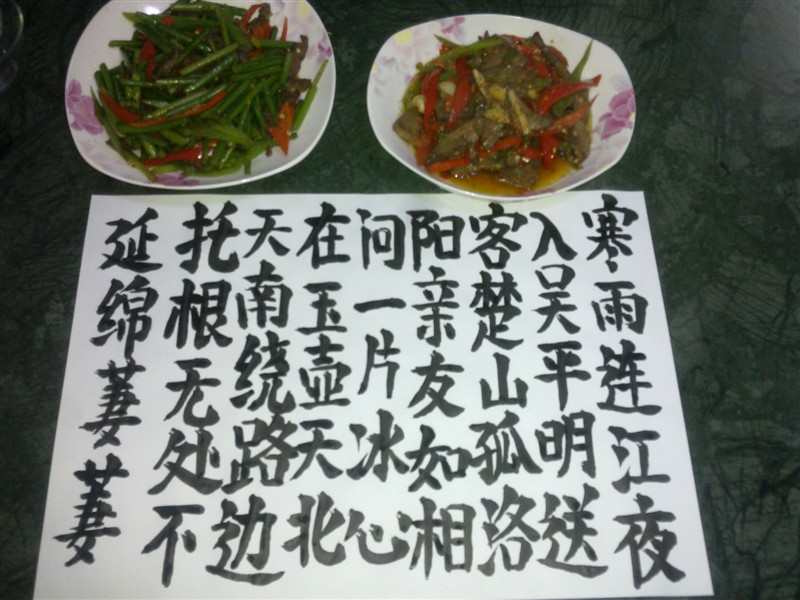 寒雨连江夜
入吴平明送
客楚山孤洛
阳亲友如相
问一片冰心
在玉壶天北
天南绕路边
托根无处不
延绵萋萋